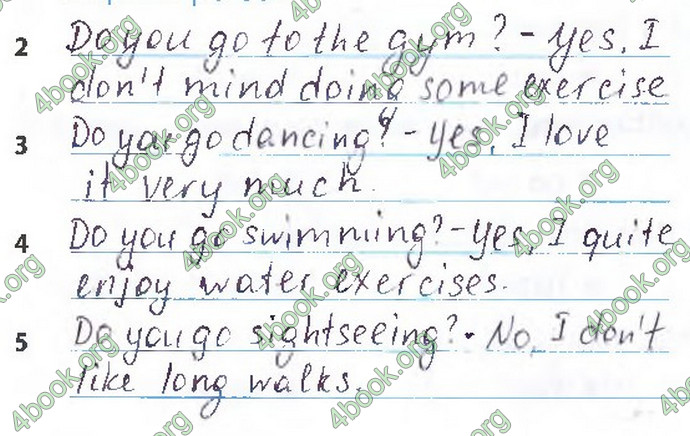 2 Do you go to the gym? - Yes, I
don't mind doing some exercise
3 Do you go dancing? - Yes, I love
it very much.
4 Do you go swimming? - Yes, I quite
enjoy water exercises.
5 Do you go sightseeing? - No, I don't
like long walks.